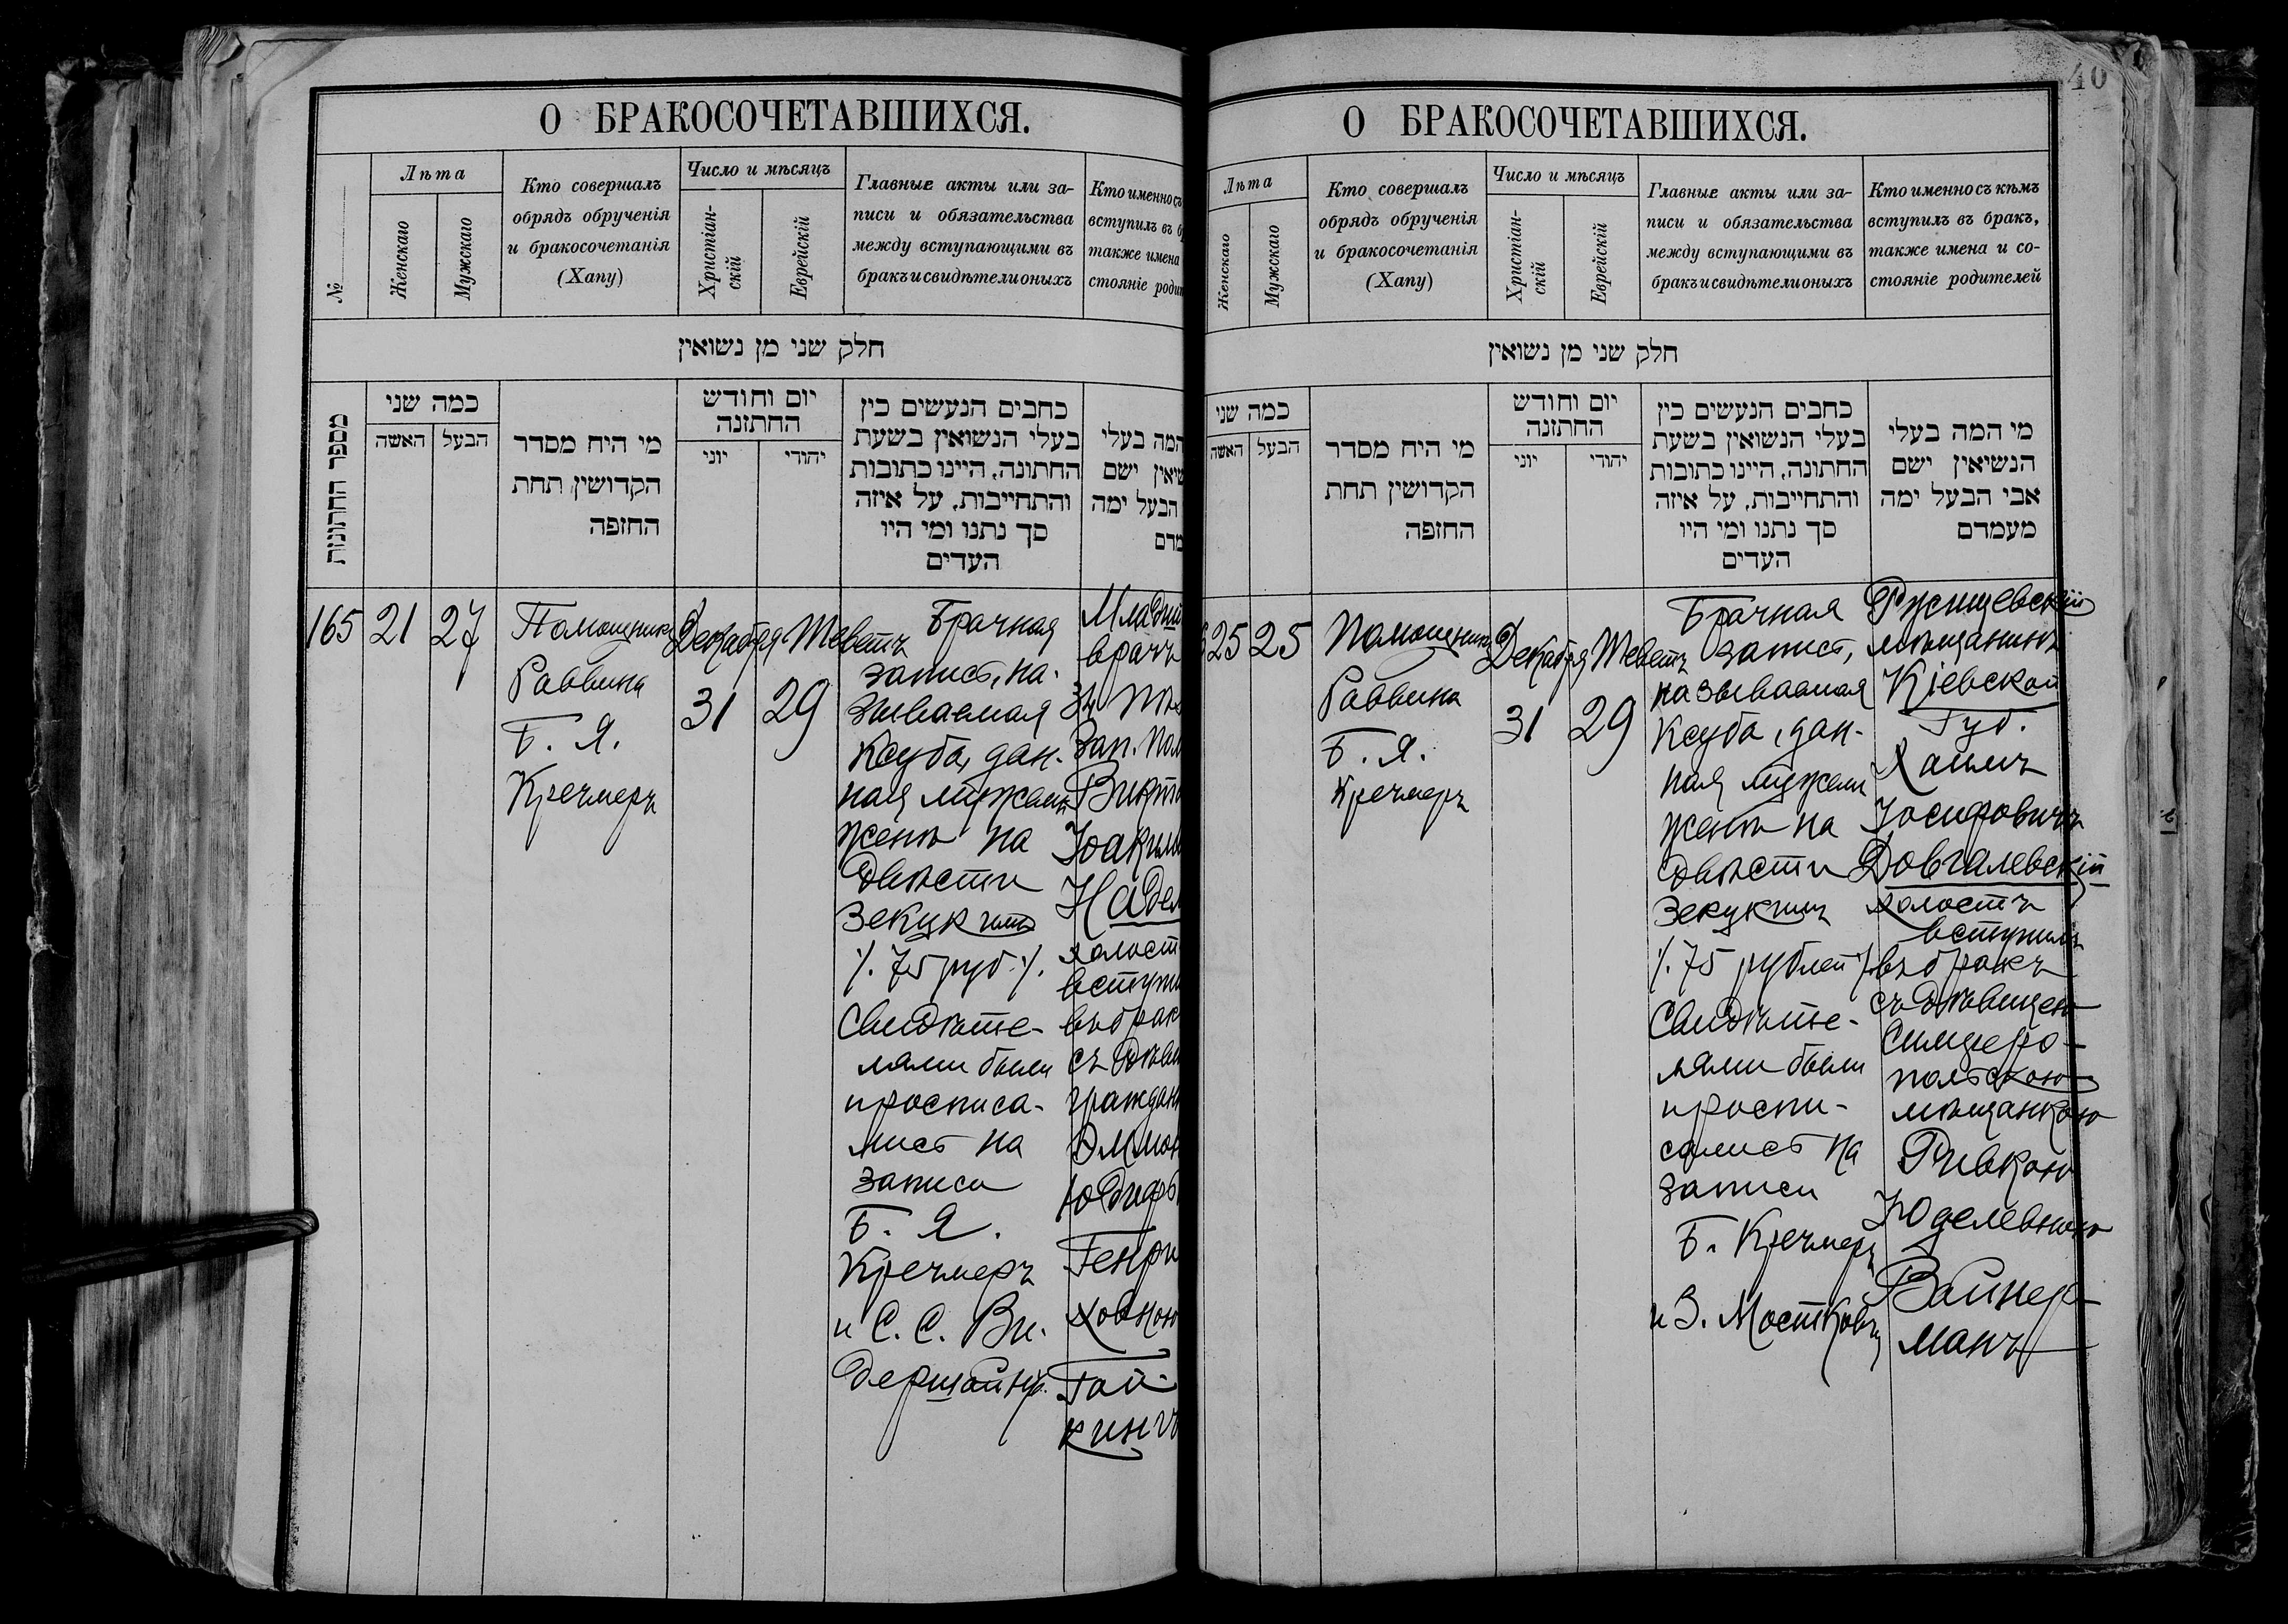 О БРАКОСОЧЕТАВШИХСЯ.
№
Лѣта
Женскаго
Мужскаго
Кто совершалъ
обрядъ обрученія
и бракосочетанія
(Хапу)
Число и мѣсяцъ
Христіан-
скій
Еврейскій
Главные акты или за-
писи и обязательства
между вступающими въ
бракъ и свидѣтели оныхъ
Кто именно съ
вступилъ въ
также имена
стояніе
חלק שני מן נשואין
מספר החתונות
כמה שני
האשה
הבעל
מי היח מסדר
הקדושין תחת
החזפה
יום וחודש
החתזנה
יוני
יהודי
כחבים הנעשים כין
בעלי הנשואין בשעת
החתונה, היינו כתובות
והתחייבות, על איזה
סך נתנו ומי היו
העדים
המה בעלי
ישם
הבעל ימה
165
21
27
Помощникъ
Раввина
Б. Я.
Кречмеръ
Декабря
31
Теветъ
29
Брачная
запись, на-
зываемая
Ксуба, дан-
ная мужемъ
женѣ на
двѣсти
зекукимъ
/. 75 руб. /.
Свидѣте-
лями были
и росписа-
лись на
записи
Б. Я.
Кречмеръ
и С. С. Ви-
дершайнъ.
врачъ
34
Зап.
въ
съ
Ген
ховною
Гой-
кингъ
40
О БРАКОСОЧЕТАВШИХСЯ.
Лѣта
Женскаго
Мужскаго
Кто совершалъ
обрядъ обрученія
и бракосочетанія
(Хапу)
Число и мѣсяцъ
Христіан-
скій
Еврейскій
Главные акты или за-
писи и обязательства
между вступающими въ
бракъ и свидѣтели оныхъ
Кто именно съ кѣмъ
вступилъ въ бракъ,
также имена и со-
стояніе родителей
חלק שני מן נשואין
כמה שני
האשה
הבעל
מי היח מסדר
הקדושין תחת
החזפה
יום וחודש
החתזנה
יוני
יהודי
כחבים הנעשים כין
בעלי הנשואין בשעת
החתונה, היינו כתובות
והתחייבות, על איזה
סך נתנו ומי היו
העדים
מי המה בעלי
הנשיאין ישם
אבי הבעל ימה
מעמדם
25
25
Помощникъ
Раввина
Б. Я.
Кречмеръ
Декабря
31
Теветъ
29
Брачная
запись,
называемая
Ксуба, дан-
ная мужемъ
женѣ на
двѣсти
зекукимъ
/. 75 рублей /.
Свидѣте-
лями были
и роспи-
сались на
записи
Б. Кречмеръ
и З. Мостковъ
Ржищевскій
мѣщанинъ
Кіевской
Губ.
Хаимъ
Іосифовичъ
Довгалевскій
холостъ
вступилъ
въ бракъ
съ дѣвицею
Симферо-
польскою
мѣщанкою
Ривкою
Юделевною
Вайнер-
манъ